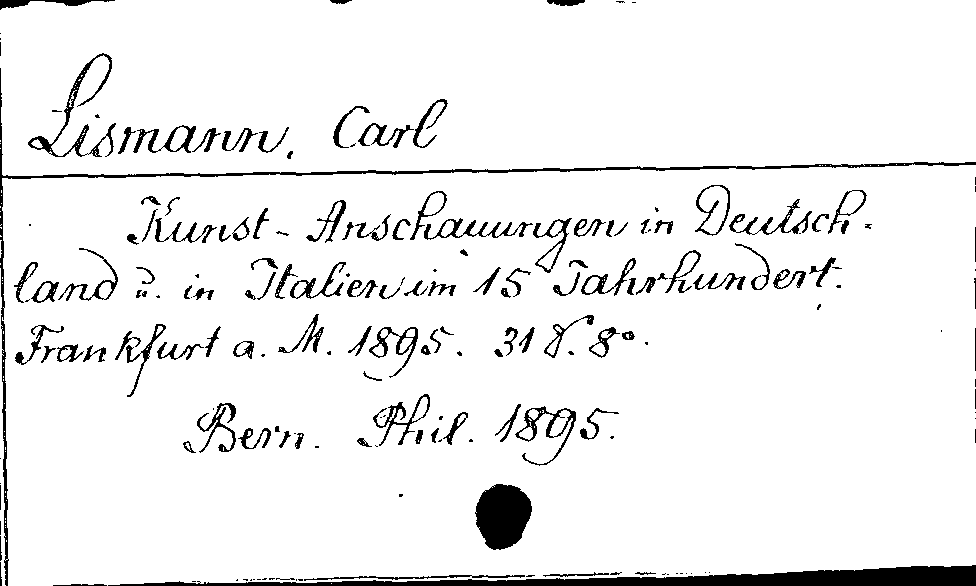 Lismann, Carl
Kunst-Anschauungen in Deutsch-
land u. in Italien im 15 Jahrhundert.
Frankfurt a. M. 1895. 31 S. 8°.
Bern. Phil. 1895.